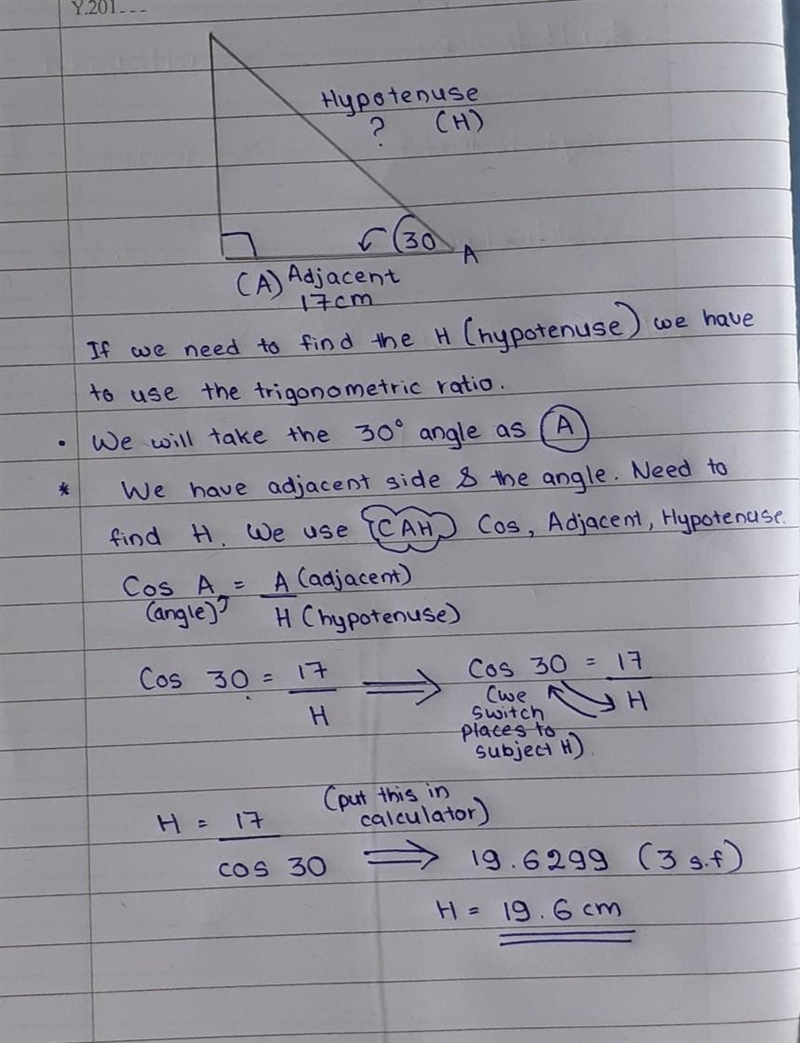 Y.201---
Hypotenuse
? (H)
(30
A
(A) Adjacent
17cm
If we need to find the H (hypotenuse) we have
to use the trigonometric ratio.
• We will take the 30° angle as A
* We have adjacent side & the angle. Need to
find H. We use CAH Cos, Adjacent, Hypotenuse.
Cos A = A (adjacent)
(angle) H (hypotenuse)
Cos 30 = 17
H
⟹ Cos 30 = 17
H
(we
switch
places to
subject H)
H = 17
cos 30
(put this in
calculator)
⟹ 19.6299 (3 s.f)
H = 19.6 cm